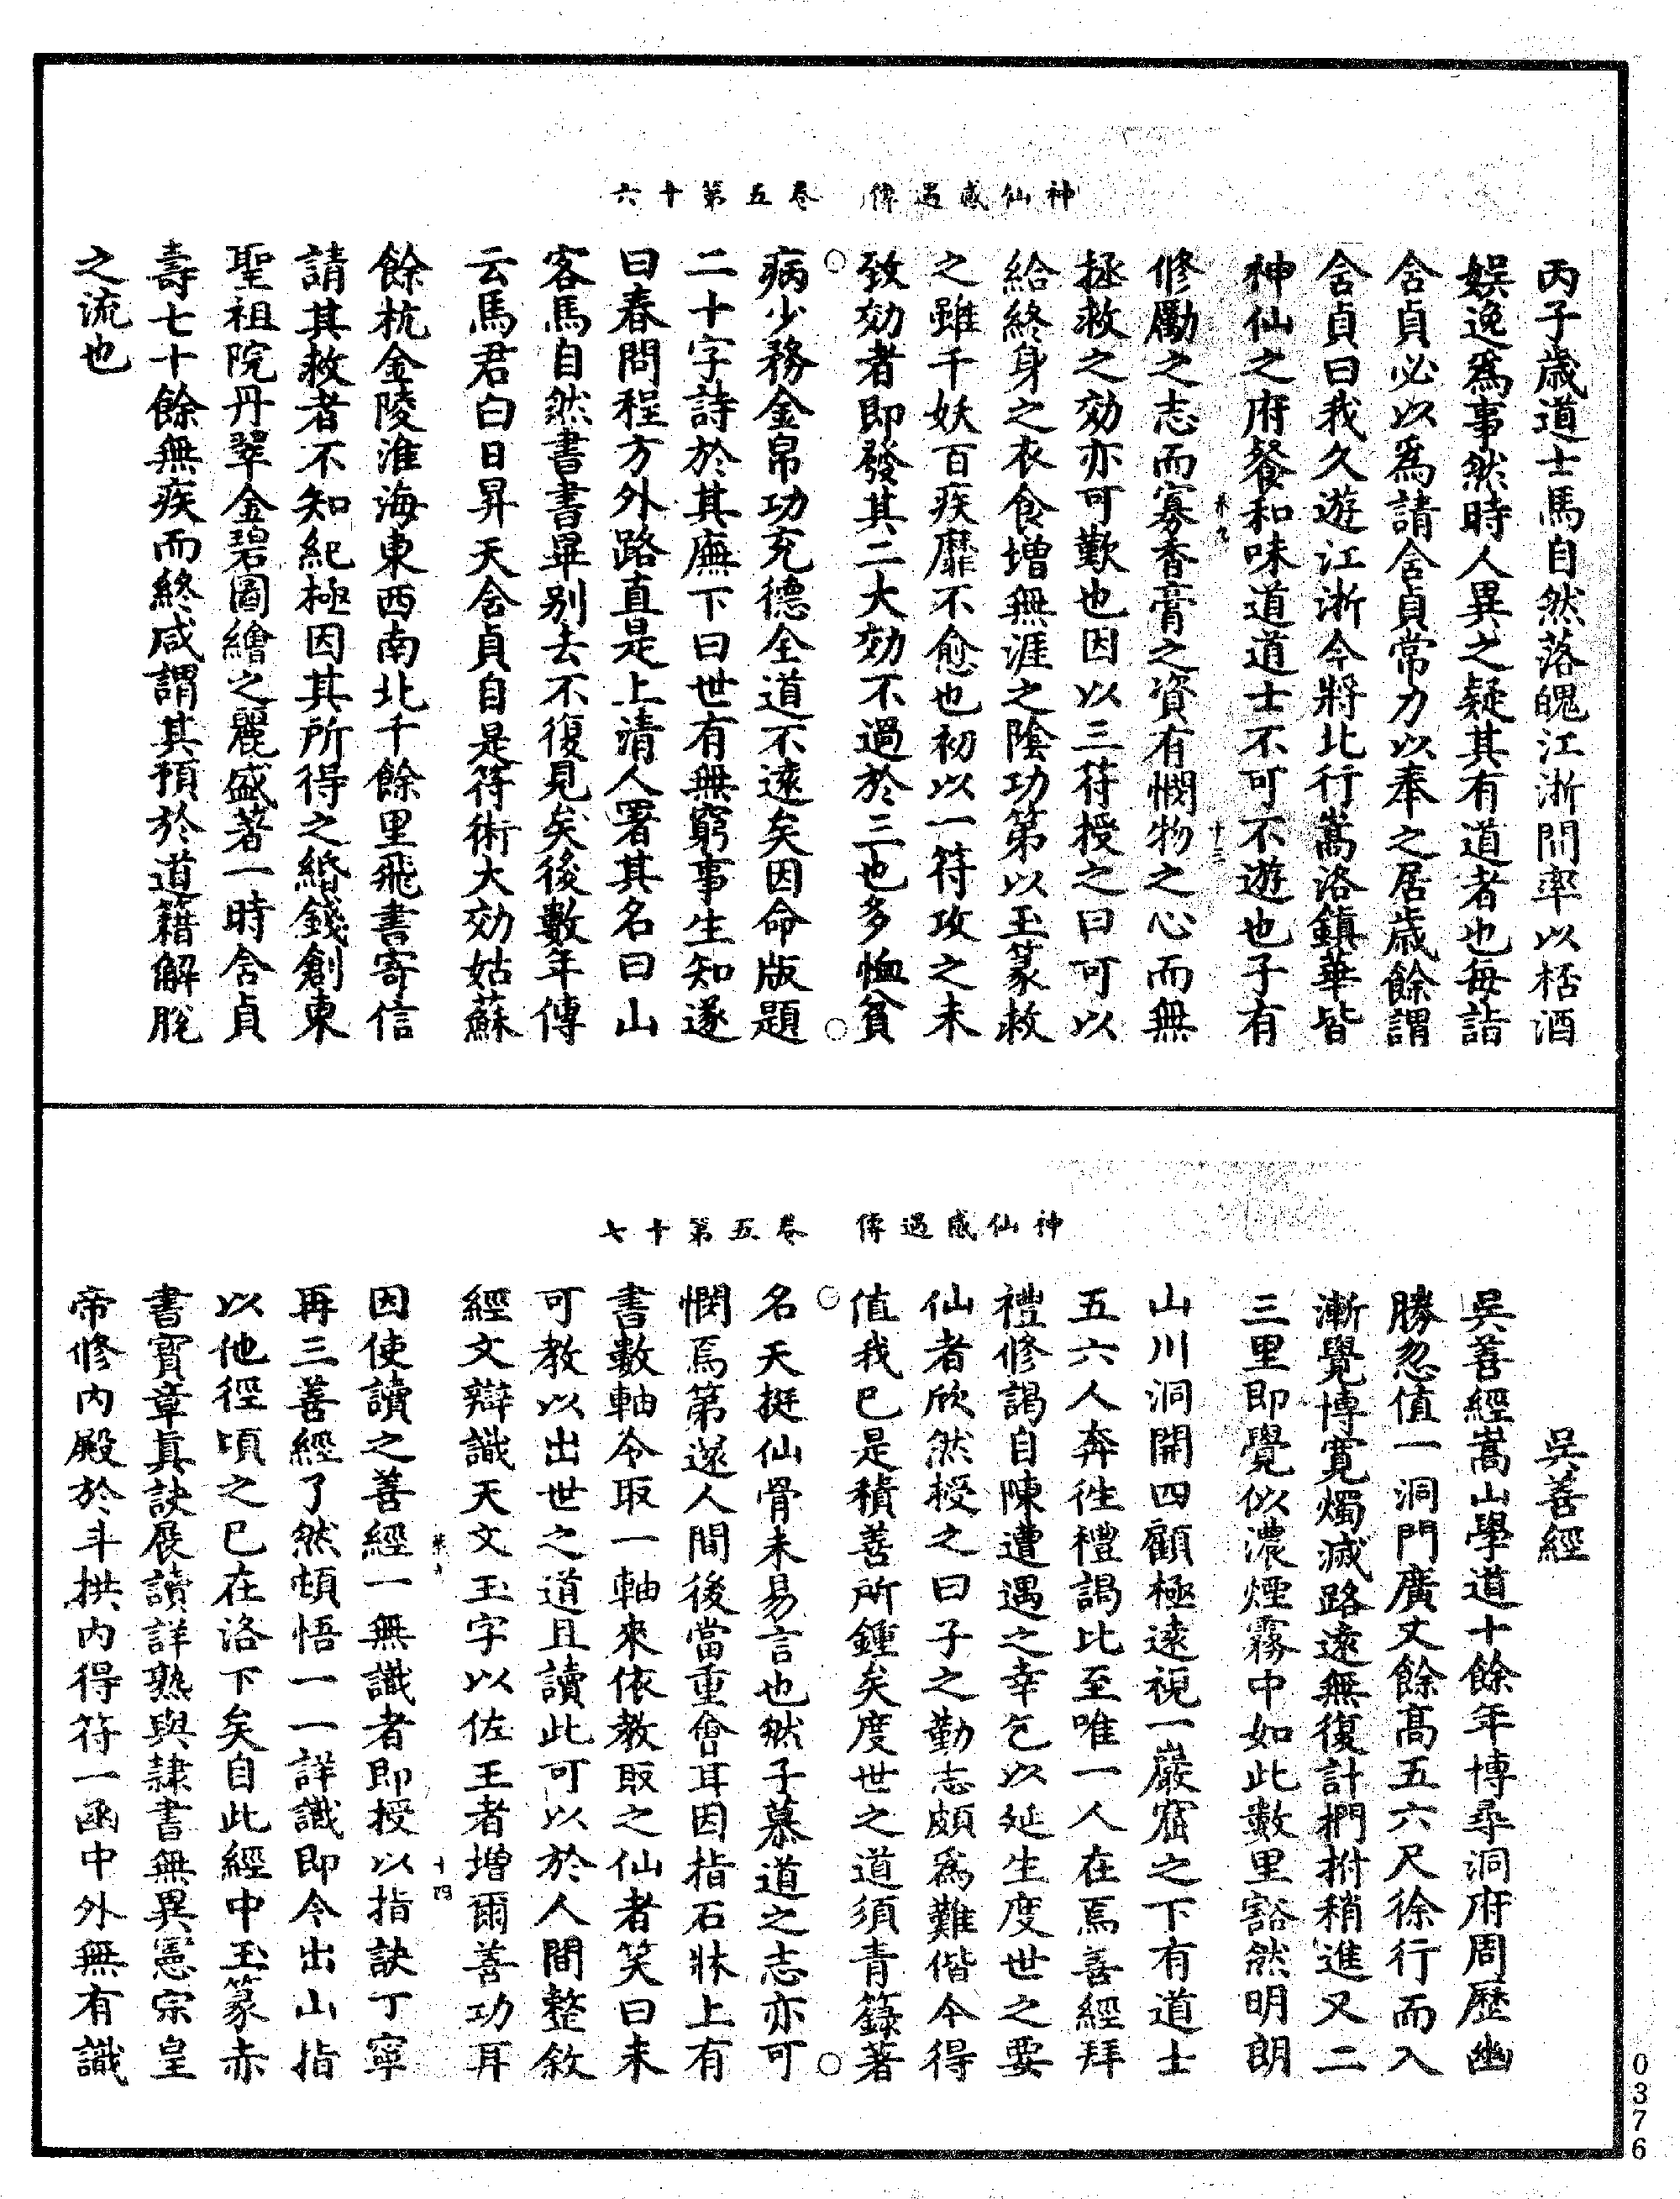 神仙感遇傳 卷五第十六
丙子歲道士馬自然落魄江浙間率以栝酒
娛逸爲事然時人異之疑其有道者也每詣
含貞必以爲請含貞常力以奉之居歲餘謂
含貞曰我久遊江浙今將北行嵩洛鎮華皆
神仙之府餐和味道道士不可不遊也子有
修勵之志而寡香膏之資有憫物之心而無
拯救之効亦可歎也因以三符授之曰可以
給終身之衣食增無涯之陰功第以玉篆救
之雖千妖百疾靡不愈也初以一符攻之未
致効者即發其二大効不過於三也多恤貧
病少務金帛功充德全道不遠矣因命版題
二十字詩於其廡下曰世有無窮事生知遂
曰春問程方外路直是上清人署其名曰山
客馬自然書書畢别去不復見矣後數年傳
云馬君白日昇天含貞自是符術大効姑蘇
餘杭金陵淮海東西南北千餘里飛書寄信
請其救者不知紀極因其所得之緡錢創東
聖祖院丹翠金碧圖繪之麗盛著一時含貞
壽七十餘無疾而終咸謂其預於道籍解脫
之流也
十三
神仙感遇傳 卷五第十七
吳善經
吳善經嵩山學道十餘年博尋洞府周歷幽
勝忽值一洞門廣丈餘高五六尺徐行而入
漸覺博寬燭滅路遠無復計捫拊稍進又二
三里即覺似濃煙霧中如此數里豁然明朗
山川洞開四顧極遠視一巖窟之下有道士
五六人奔往禮謁比至唯一人在焉善經拜
禮修謁自陳遭遇之幸乞以延生度世之要
仙者欣然授之曰子之勤志頗爲難偕今得
值我已是積善所鍾矣度世之道須青籙著
名天挺仙骨未易言也然子慕道之志亦可
憫焉第遂人間後當重會耳因指石牀上有
書數軸令取一軸來依教取之仙者笑曰未
可教以出世之道且讀此可以於人間整敘
經文辯識天文玉字以佐王者增爾善功耳
因使讀之善經一無識者即授以指訣丁寧
再三善經了然頓悟一一詳識即令出山指
以他徑頃之已在洛下矣自此經中玉篆赤
書寶章真訣展讀詳熟與隷書無異憲宗皇
帝修内殿於斗拱内得符一函中外無有識
十四
0376